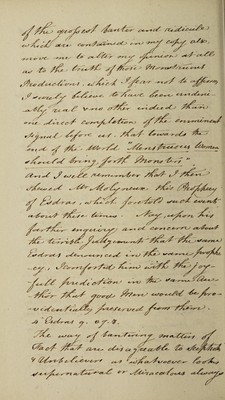 of the grossest banter and ridicule
which are contained in my copy also
move me to alter my opinion at all
as to the truth of those Monstrous
Productions which I fear not to affirm
I surely believe to have been undeni-
ably real & no other indeed than
one direct completion of the eminent
signal before us, that towards the
end of the World "Menstruous Women
should bring forth Monsters".
And I well remember that I then
shewed Mr Molyneux this Prophecy
of Esdras, which foretold such events
about these times. Nay, upon his
farther enquiry and concern about
the terrible Judgement that the same
Esdras denounced in the same prophe-
cy, I comforted him with the joy-
full prediction in the same Au-
thor that good Men would be pro-
videntially preserved from them.
4 Esdras 9. v 7. 8.
The way of bantering matters of
Fact that are disagreable to Scepticks
& Unbelievers as whatsoever looks
supernatural or Miraculous always